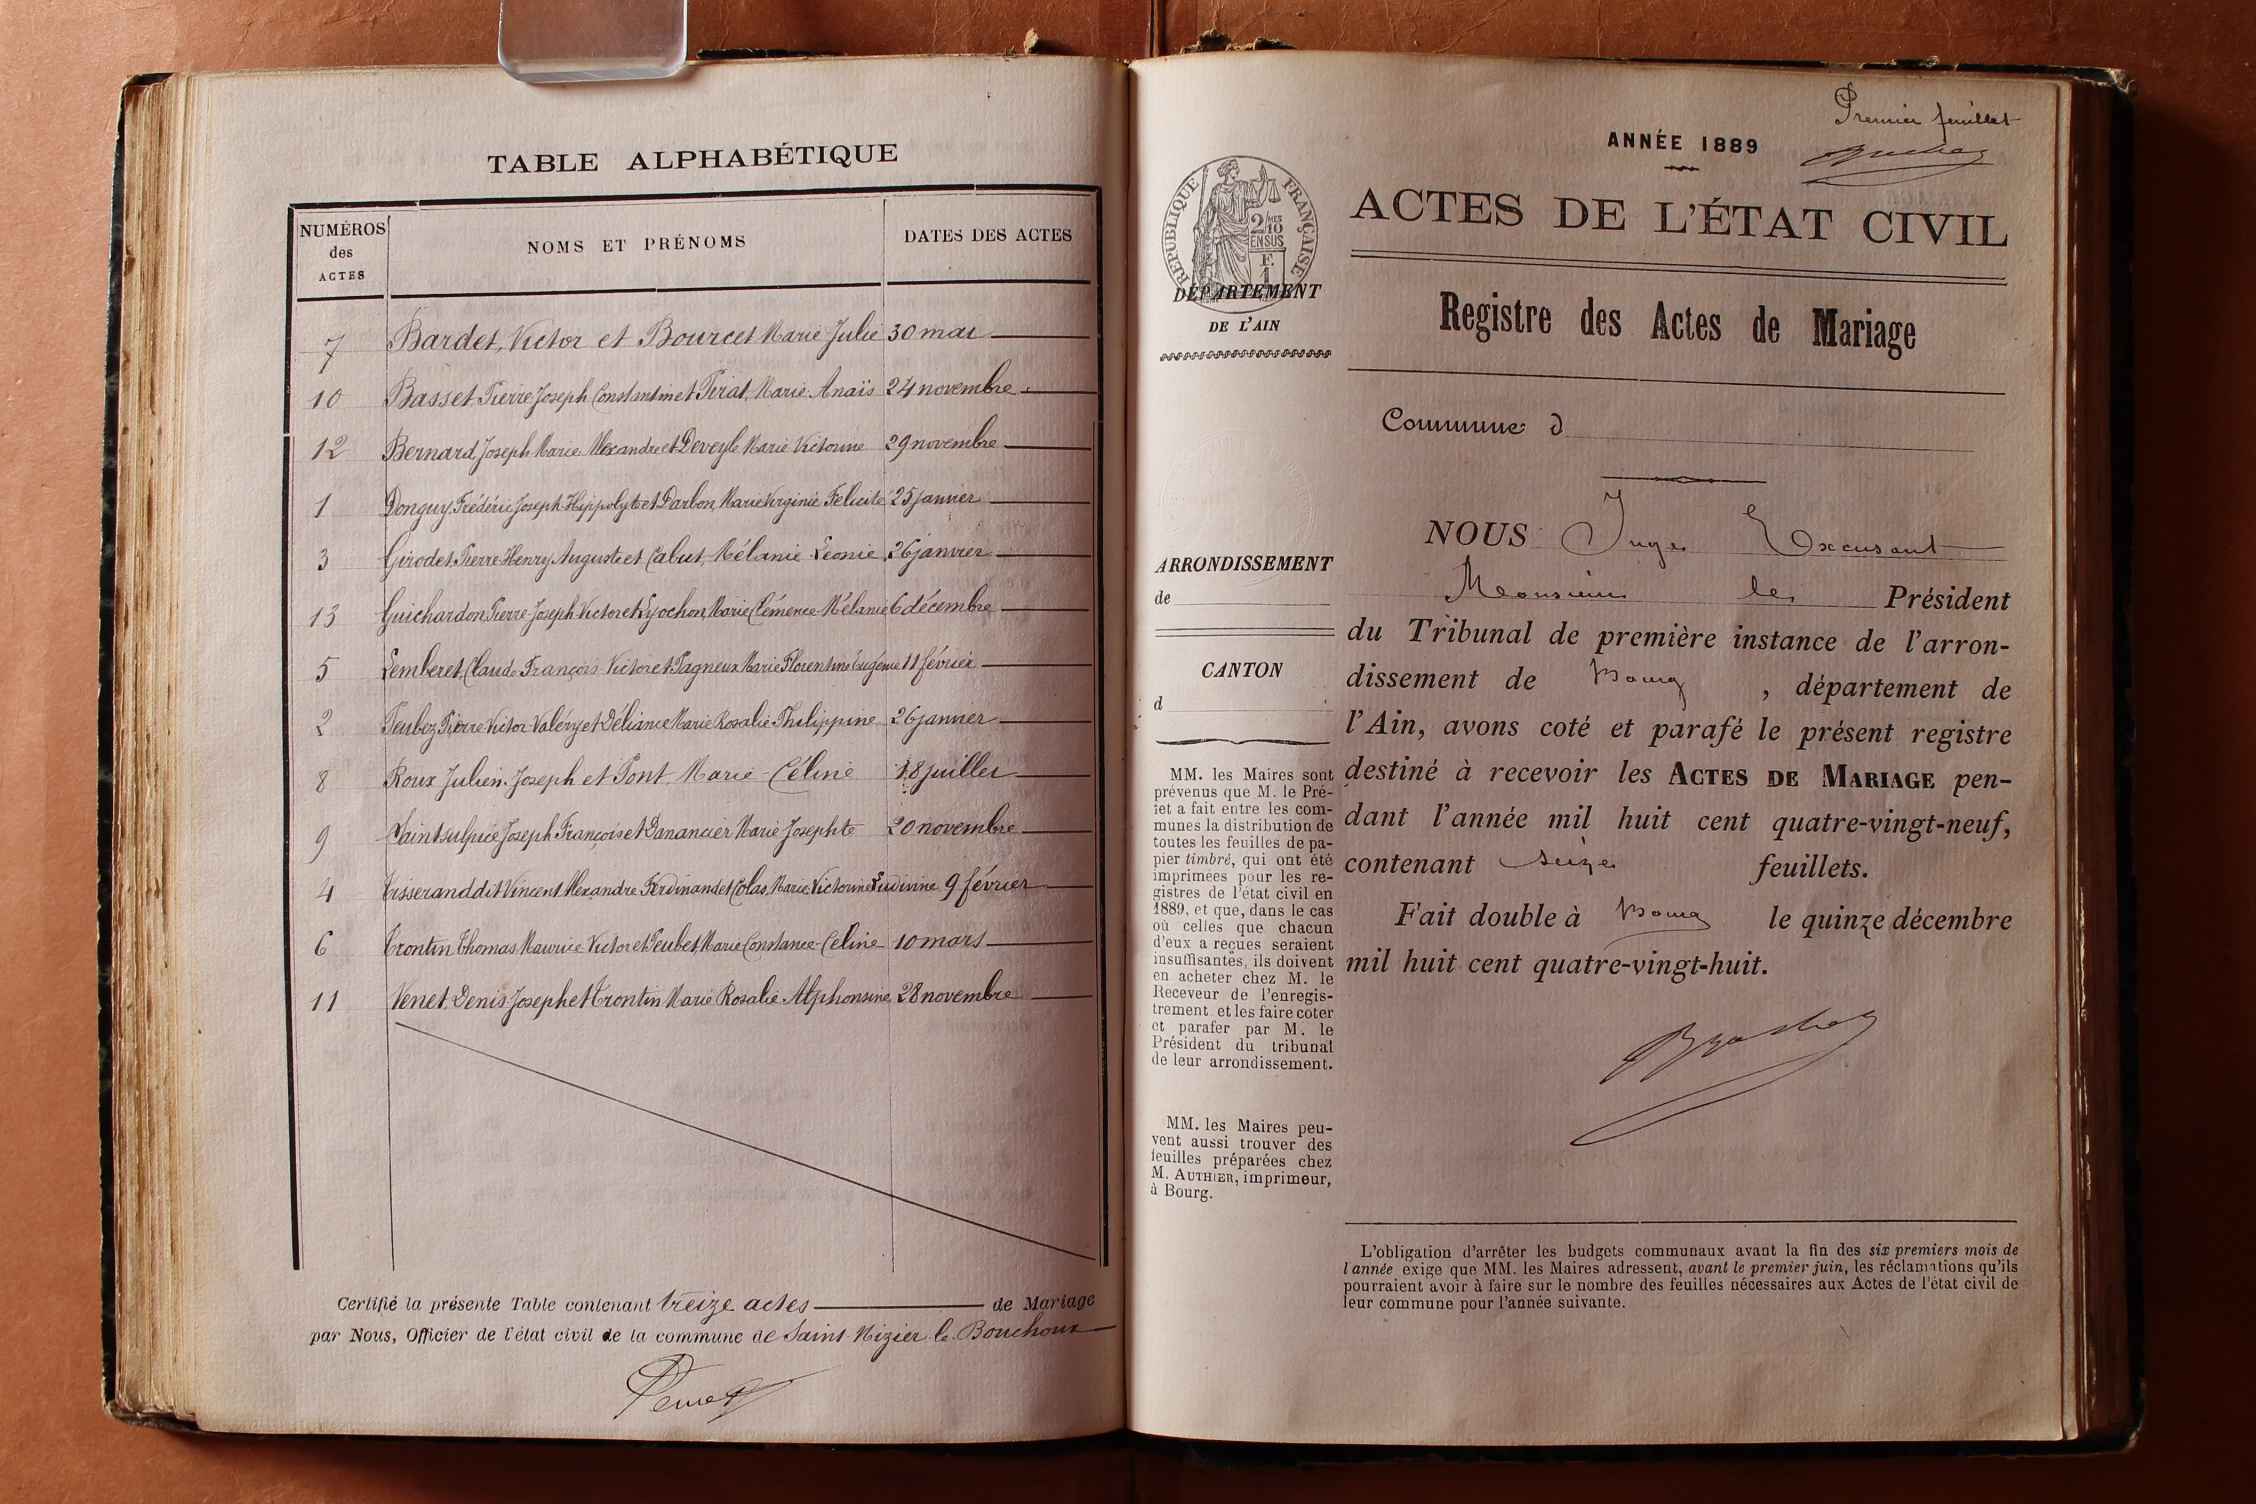 TABLE ALPHABÉTIQUE
NUMÉROS des ACTES NOMS ET PRÉNOMS DATES DES ACTES
7 Bardet, Victor et Bourcet Marie Julie 30 mai
10 Basset, Pierre Joseph Constantin et Pirat, Marie Anaïs 24 novembre
12 Bernard, Joseph Marie Alexandre et Deveyle Marie Victorine 29 novembre
1 Donguy, Frédéric Joseph Hippolyte et Darbon, Marie Virginie Félicité 25 janvier
3 Girodet, Pierre Henry Auguste et Cabut, Mélanie Léonie 26 janvier
13 Guichardon, Pierre Joseph Victor et Lyochon, Marie Clémence Mélanie 6 décembre
5 Lemberet, Claude François Victor et Pagneux Marie Florentine Eugénie 11 février
2 Peuboz, Pierre Victor Valéry et Déliance Marie Rosalie Philippine 26 janvier
8 Roux Julien Joseph et Pont Marie Céline 18 juillet
9 Saintsulpice Joseph François et Danancier Marie Josephte 20 novembre
4 Tisserand dit Vincent Alexandre Ferdinand et Colas, Marie Victorine Ludivine 9 février
6 Trontin Thomas Maurice Victor et Peubet, Marie Constance Céline 10 mars
11 Venet, Denis Joseph et Trontin Marie Rosalie Alphonsine 28 novembre
Certifié la présente Table contenant treize actes de Mariage
par Nous, Officier de l'état civil de la commune de Saint Nizier le Bouchoux
Premier feuillet
ANNÉE 1889
ACTES DE L'ÉTAT CIVIL
RÉPUBLIQUE FRANÇAISE
2/10 EN SUS
F. 1
DÉPARTEMENT
DE L'AIN
Registre des Actes de Mariage
Commune d
ARRONDISSEMENT
de
CANTON
d
MM. les Maires sont
prévenus que M. le Pré-
fet a fait entre les com-
munes la distribution de
toutes les feuilles de pa-
pier timbré, qui ont été
imprimées pour les re-
gistres de l'état civil en
1889, et que, dans le cas
où celles que chacun
d'eux a reçues seraient
insuffisantes, ils doivent
en acheter chez M. le
Receveur de l'enregis-
trement et les faire coter
et parafer par M. le
Président du tribunal
de leur arrondissement.
MM. les Maires peu-
vent aussi trouver des
feuilles préparées chez
M. AUTHIER, imprimeur,
à Bourg.
NOUS Juge Excusant
Monsieur le Président
du Tribunal de première instance de l'arron-
dissement de Bourg, département de
l'Ain, avons coté et parafé le présent registre
destiné à recevoir les ACTES DE MARIAGE pen-
dant l'année mil huit cent quatre-vingt-neuf,
contenant seize feuillets.
Fait double à Bourg le quinze décembre
mil huit cent quatre-vingt-huit.
L'obligation d'arrêter les budgets communaux avant la fin des six premiers mois de
l'année exige que MM. les Maires adressent, avant le premier juin, les réclamations qu'ils
pourraient avoir à faire sur le nombre des feuilles nécessaires aux Actes de l'état civil de
leur commune pour l'année suivante.